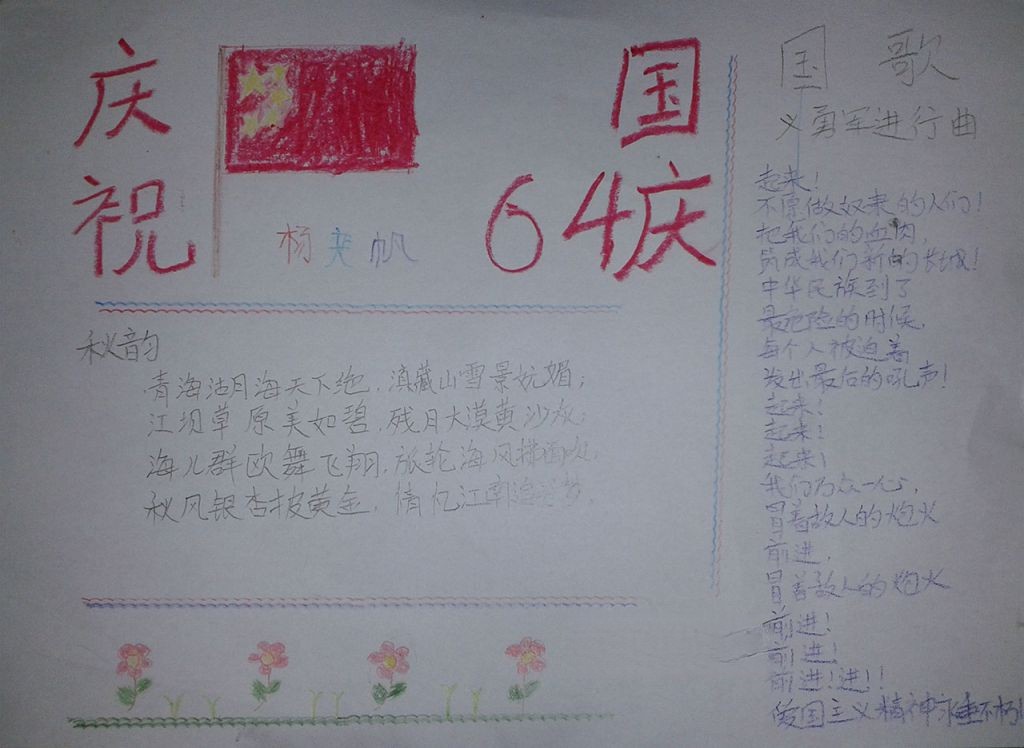 庆祝
国庆
64
杨奕帆
秋韵
青海湖月海天下绝，滇藏山雪景妩媚；
江坝草原美如碧，残月大漠黄沙
海儿群欧舞飞翔，旅轮海风
秋风银杏披黄金，情忆江南
国歌
义勇军进行曲
起来！
不愿做奴隶的人们！
把我们的血肉，
筑成我们新的长城！
中华民族到了
最危险的时候，
每个人被迫着
发出最后的吼声！
起来！
起来！
起来！
我们万众一心，
冒着敌人的炮火
前进，
冒着敌人的炮火
前进！
前进！
前进！进！！
爱国主义精神永垂不朽！